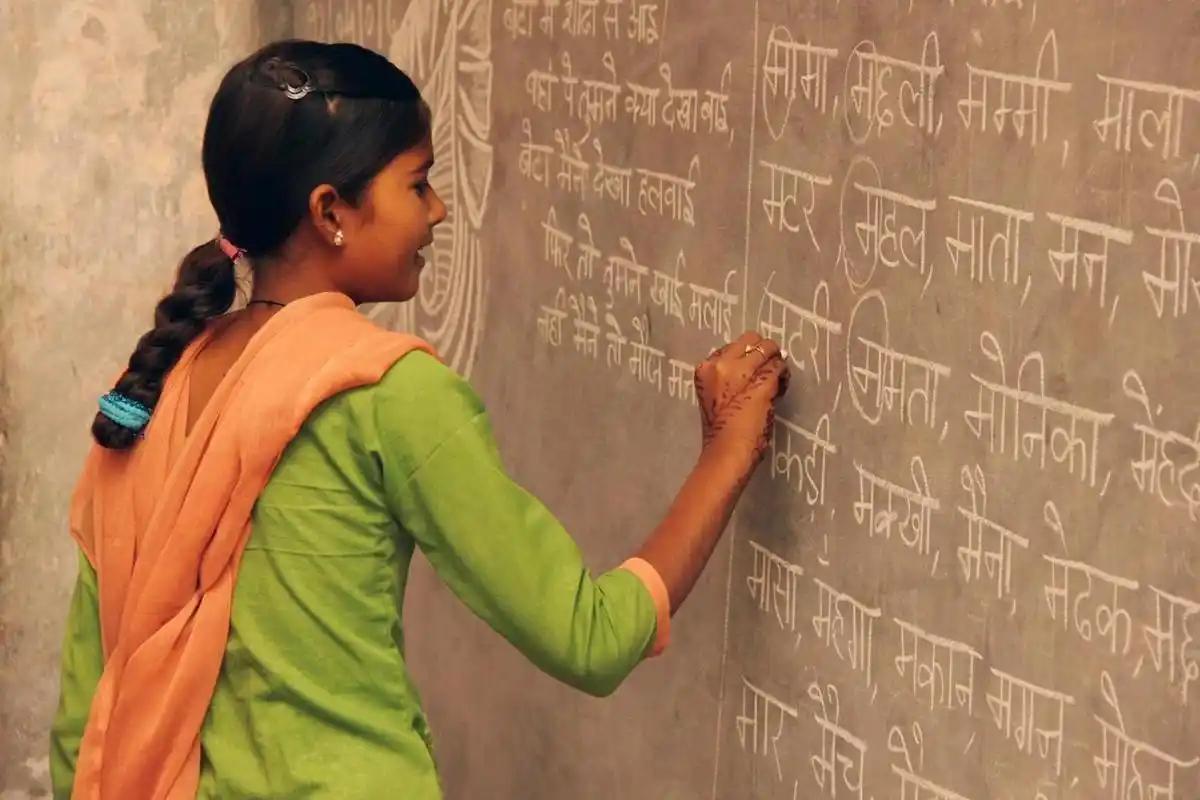 बेटा मैं शादी से आई
वहाँ पे तुमने क्या देखा बाई,
बेटा मैंने देखा हलवाई
फिर तो तुमने खाई मलाई
नहीं मैंने तो मौज
मामा, मछली, मम्मी, माला
मटर, महल, माता, मन,
मटरी, ममता, मोनिका, मेंहद
मकड़ी, मक्खी, मैना, मेढक,
मासा, महगा, मकान, मगन,
मार, मैच, मोहन